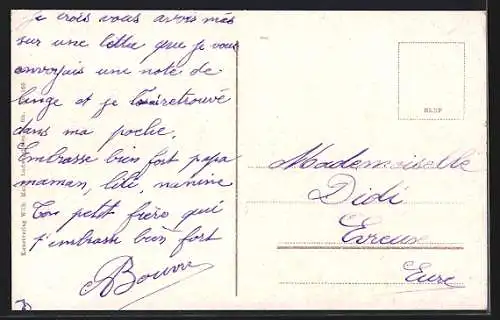 Je crois vous avois mis
sur une lettre que je vous
envoyais une note de
linge et je l'ai retrouvé
dans ma poche.
Embrasse bien fort papa
maman, lili, nenine
Ton petit frère qui
t'embrasse bien fort
Mademoiselle
Didi
Evreux
Eure